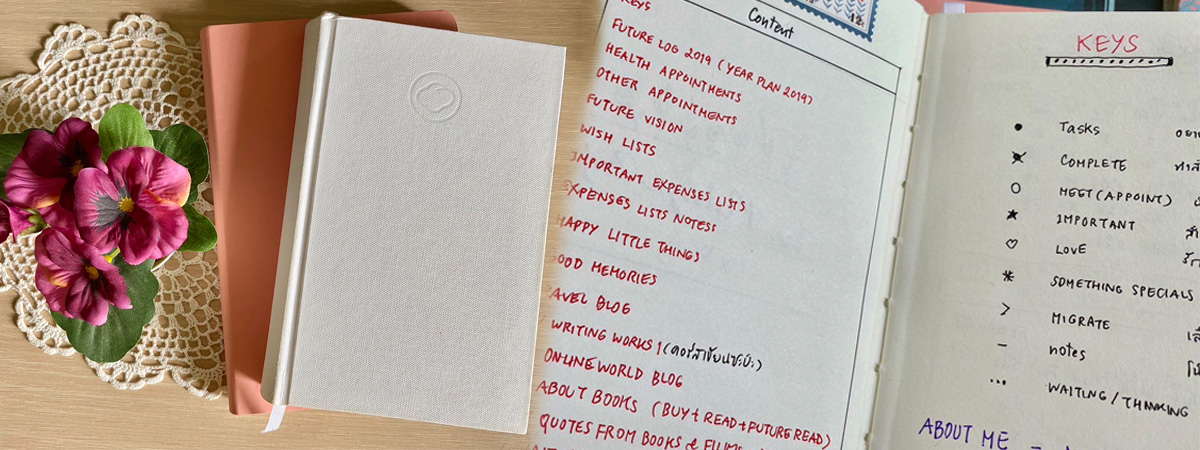 Content
KEYS
FUTURE LOG 2019 (YEAR PLAN 2019)
HEALTH APPOINTMENTS
OTHER APPOINTMENTS
FUTURE VISION
WISH LISTS
IMPORTANT EXPENSES LISTS
EXPENSES LISTS NOTESS
HAPPY LITTLE THINGS
GOOD MEMORIES
AVEL BLOG
WRITING WORKS 1 (คอร์สเขียนชะบ๊ะ)
ONLINE WORLD BLOG
ABOUT BOOKS (BUY + READ + FUTURE READ)
QUOTES FROM BOOKS & FILIMS
KEYS
Tasks
COMPLETE
MEET (APPOINT)
IMPORTANT
LOVE
SOMETHING SPECIALS
MIGRATE
notes
WAITING / THINKING
ABOUT ME